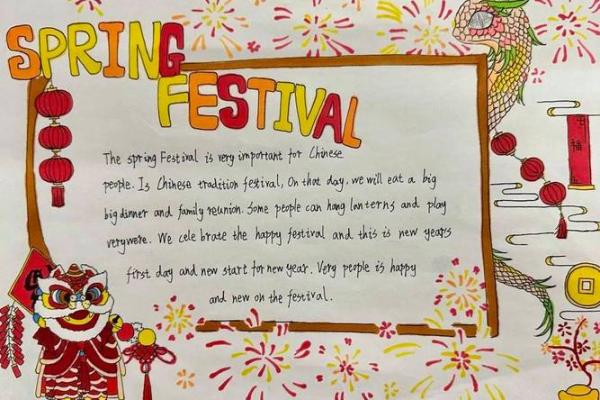 SPRING
FESTIVAL
The spring Festival is very important for Chinese
people. Is Chinese tradition festival, On that day, we will eat a big
big dinner and family reunion. Some people can hang lanterns and play
verywere. We cele brate the happy festival and this is new years
first day and new start for new year. Very people is happy
and new on the festival.
福